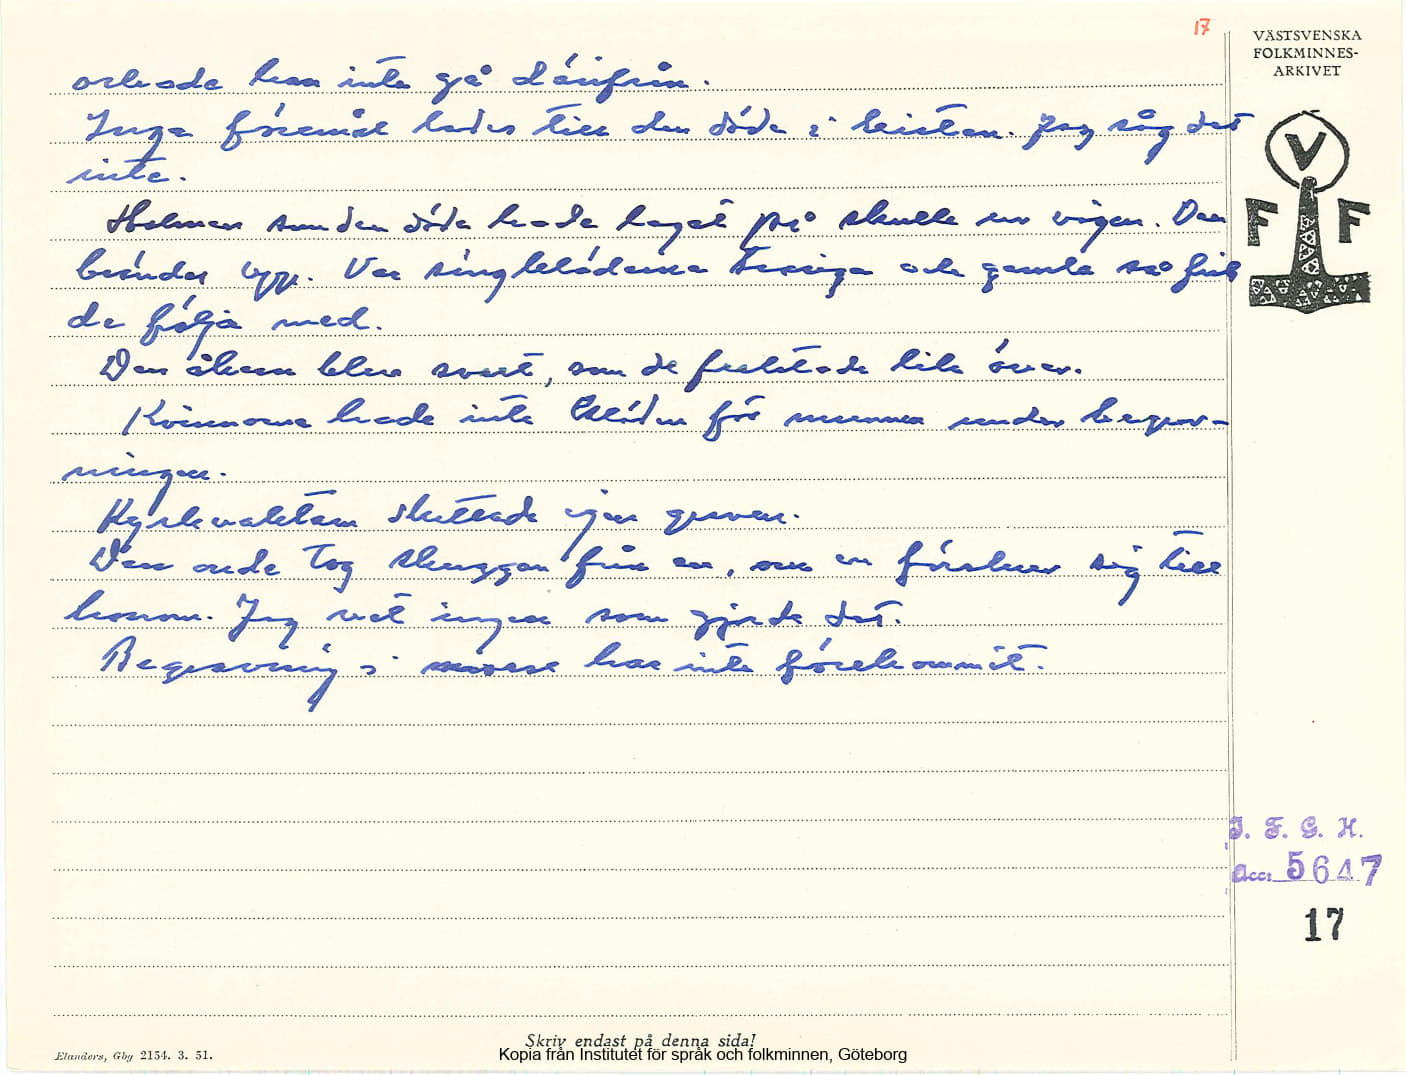 17
VÄSTSVENSKA
FOLKMINNES-
ARKIVET
V
F F
orkade han inte gå därifrån.
Inga föremål lades till den döde i kistan. Jag såg det
inte.
Halmen som den döde hade legat på skulle ur vägen. Den
brändes upp. Var sängkläderna trasiga och gamla så fick
de följa med.
Den åkern blev svart, som de fraktade lik över.
Kvinnorna hade inte kläden för munnen under begrav-
ningen.
Kyrkvaktarn skottade igen graven.
Den onde tog skuggan från en, om en förskrev sig till
honom. Jag vet ingen som gjorde det.
Begravning i mosse har inte förekommit.
I. F. G. H.
Acc: 5647
17
Skriv endast på denna sida!
Elanders, Gbg 2154. 3. 51.
Kopia från Institutet för språk och folkminnen, Göteborg